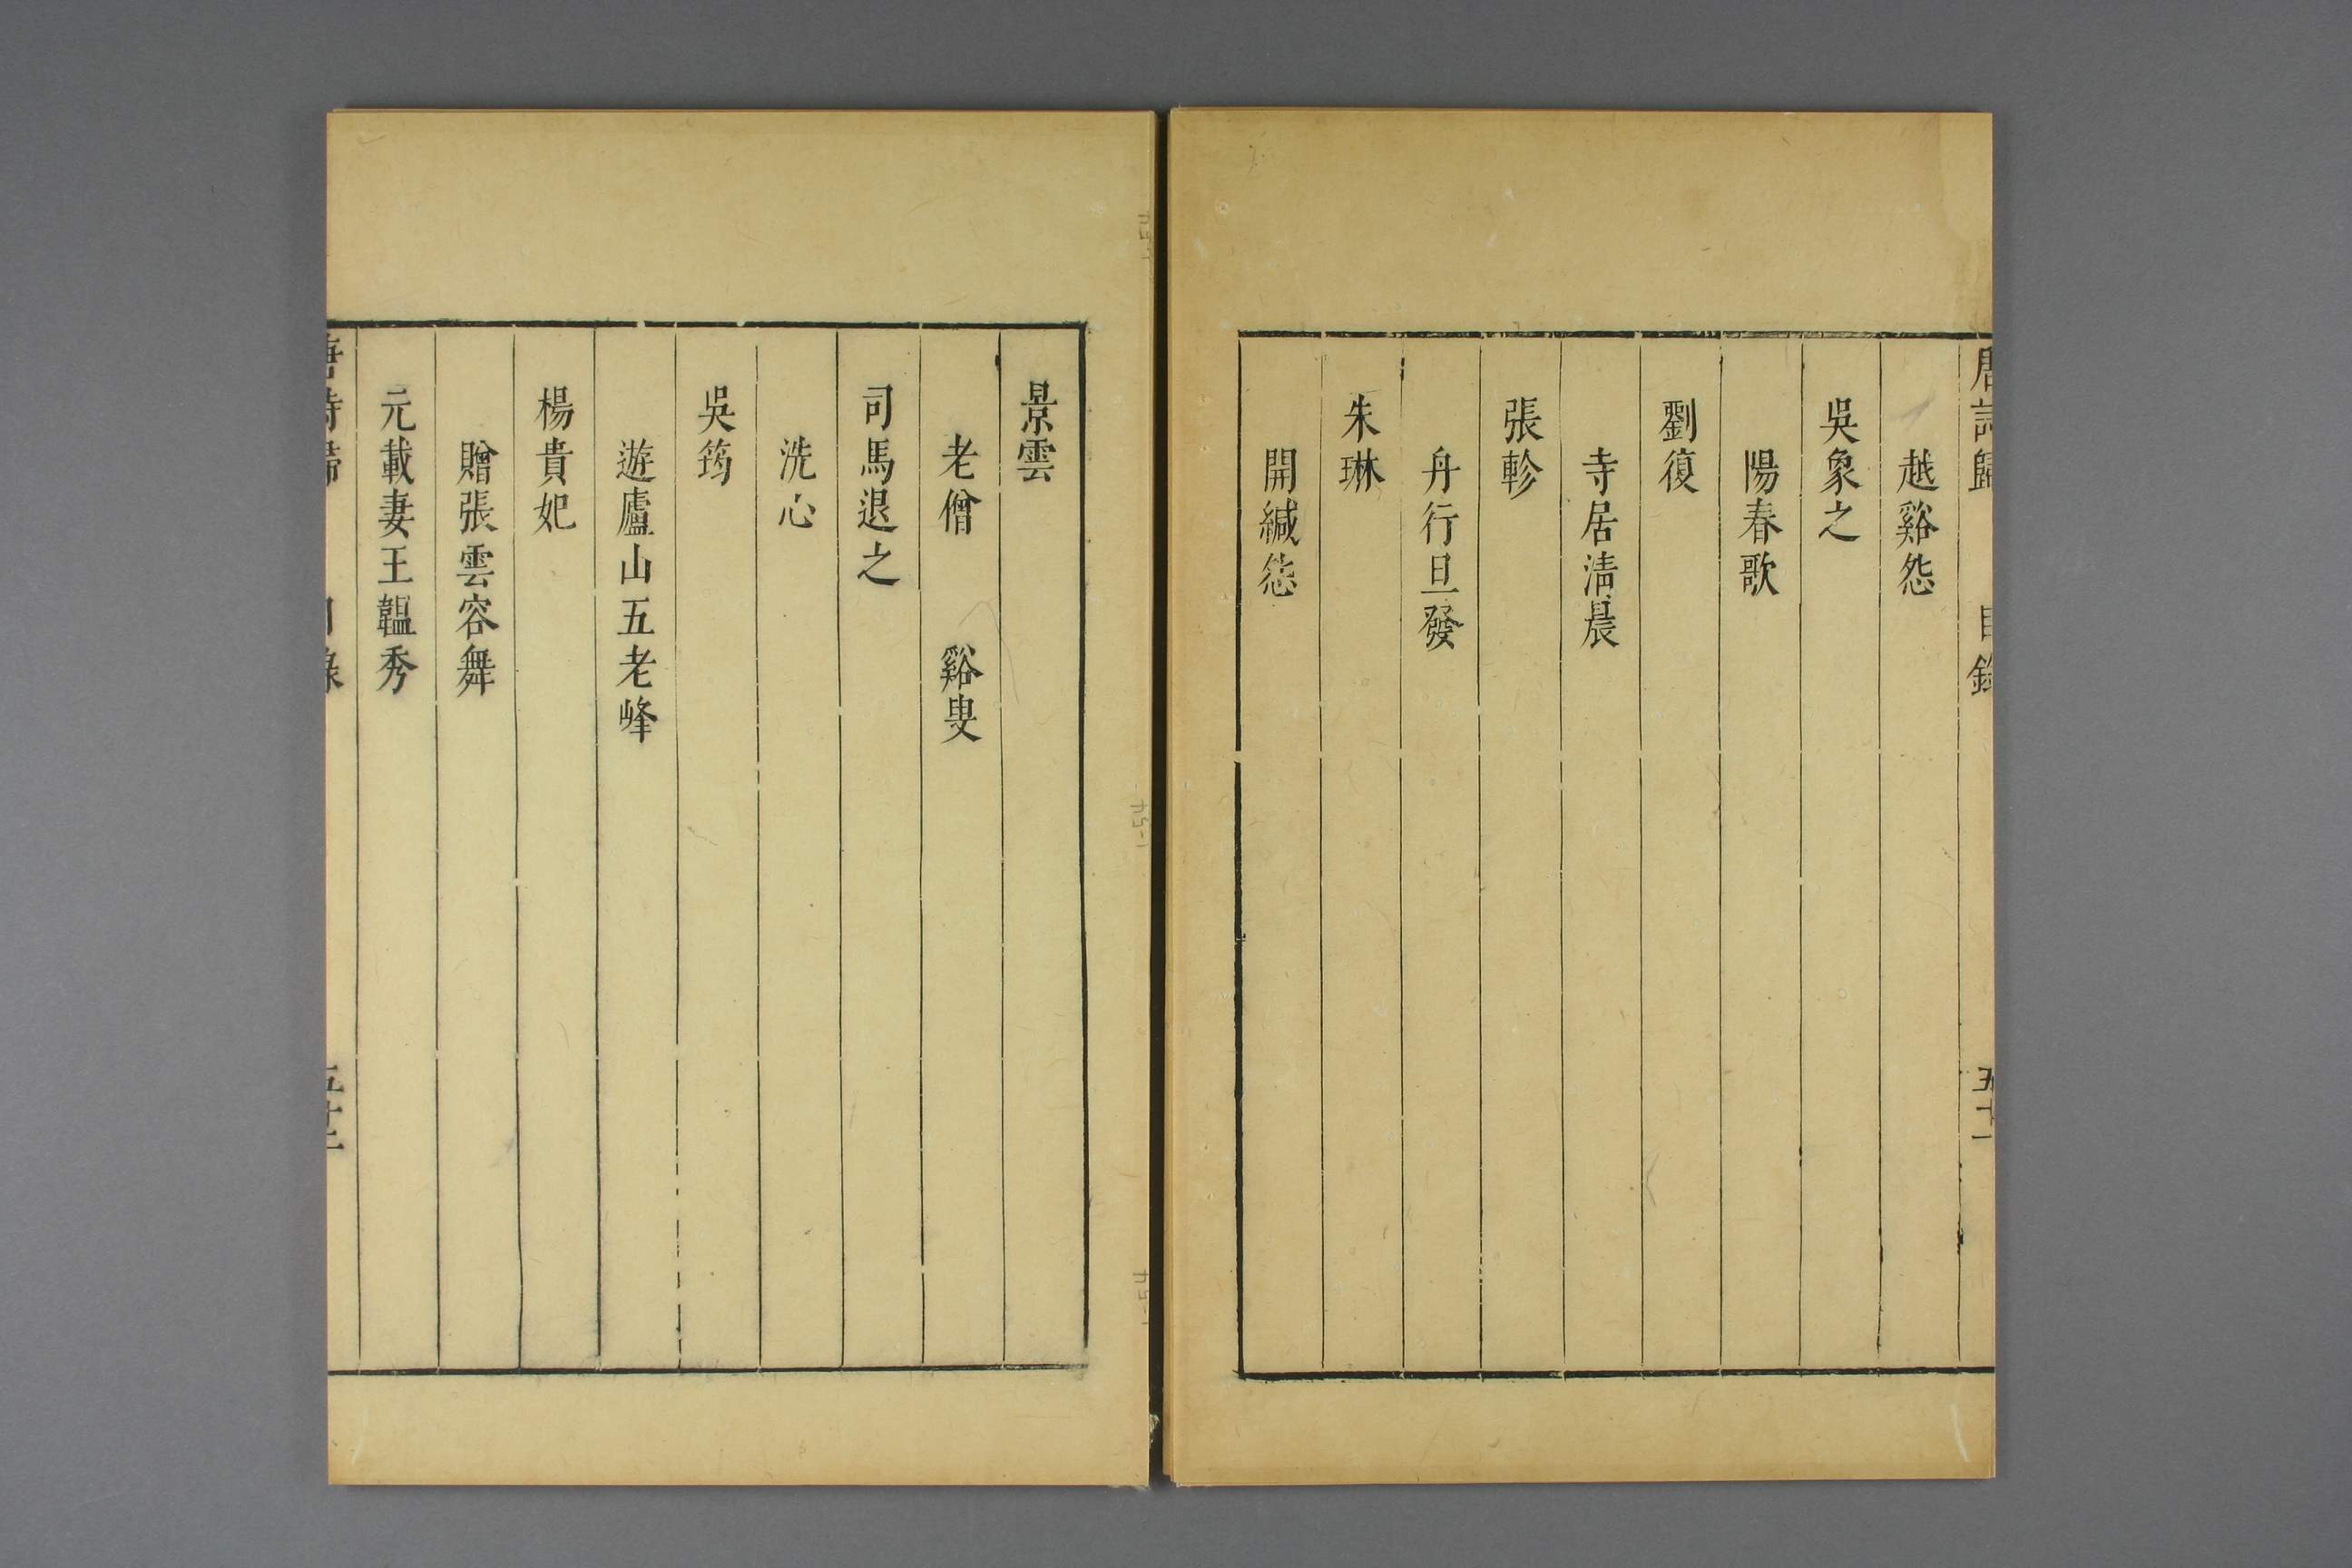 唐詩歸 目錄 五十一
越谿怨
吳象之
陽春歌
劉復
寺居清晨
張軫
舟行旦發
朱琳
開緘怨
景雲
老僧 谿叟
司馬退之
洗心
吳筠
遊廬山五老峰
楊貴妃
贈張雲容舞
元載妻王韞秀
唐詩歸 目錄 五十二